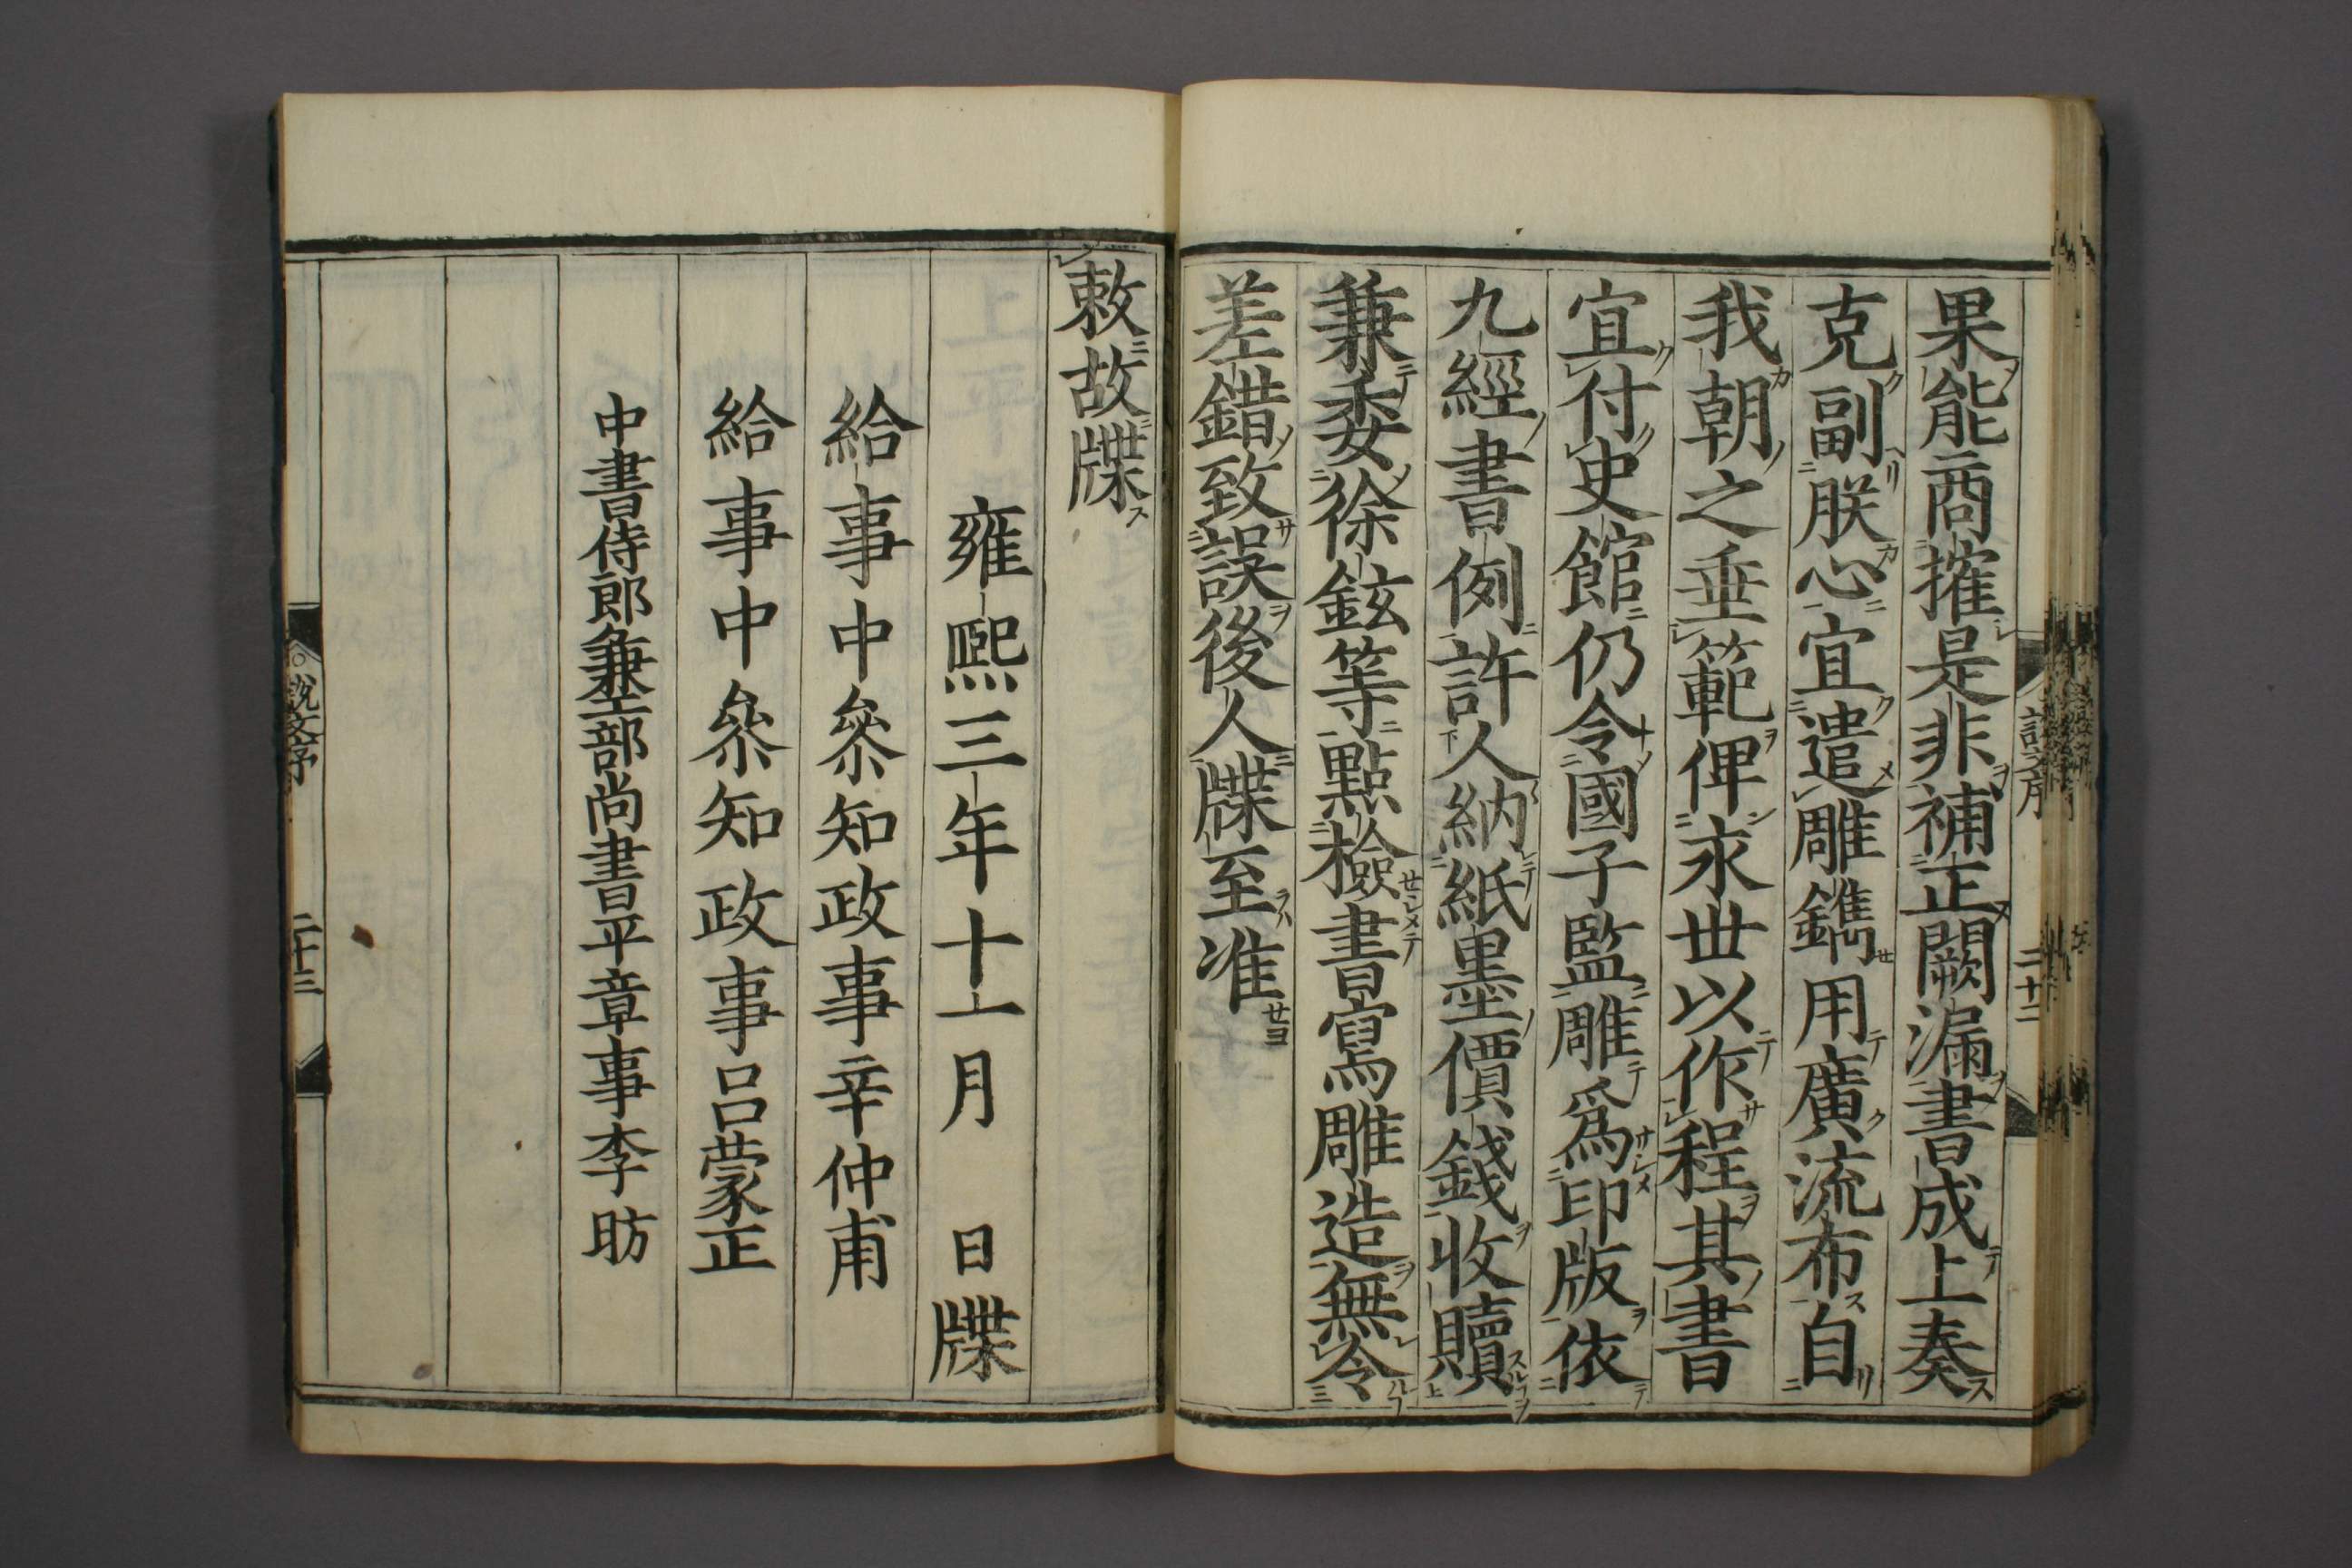 果能商搉是非補正闕漏書成上奏
克副朕心宜遣雕鐫用廣流布自
我朝之垂範俾永世以作程其書
宜付史館仍令國子監雕爲印版依
九經書例許人納紙墨價錢收贖
兼委徐鉉等點檢書寫雕造無令
差錯致誤後人牒至准
敕故牒
雍熙三年十一月 日牒
給事中參知政事辛仲甫
給事中參知政事呂蒙正
中書侍郎兼工部尚書平章事李昉
說文序 二十三